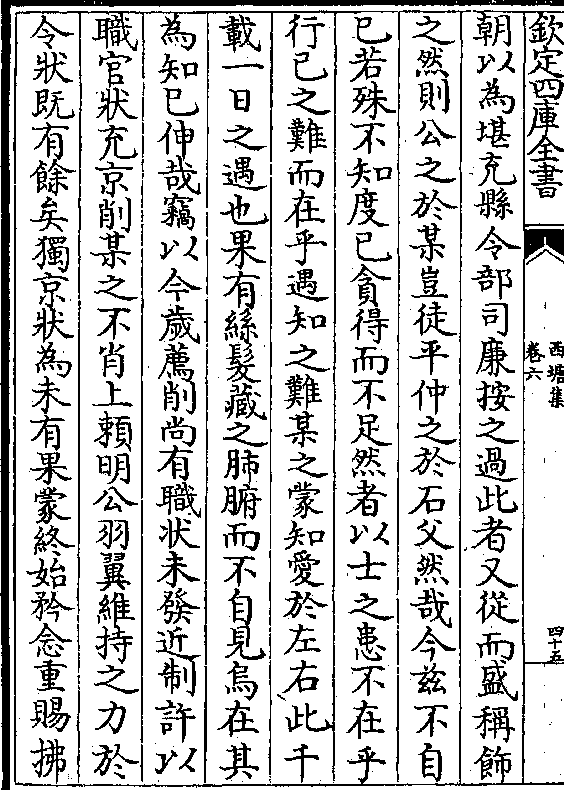 欽定四庫全書
西塘集
卷六
四十五
朝以為堪充縣令部司廉按之過此者又從而盛稱飾
之然則公之於某豈徒平仲之於石父然哉今兹不自
已若殊不知度已貪得而不足然者以士之患不在乎
行已之難而在乎遇知之難某之蒙知愛於左右此千
載一日之遇也果有絲髮藏之肺腑而不自見烏在其
為知已伸哉竊以今歲薦削尚有職狀未發近制許以
職官狀充京削某之不肖上頼明公羽翼維持之力於
令狀既有餘矣獨京狀為未有果蒙終始矜念重賜拂